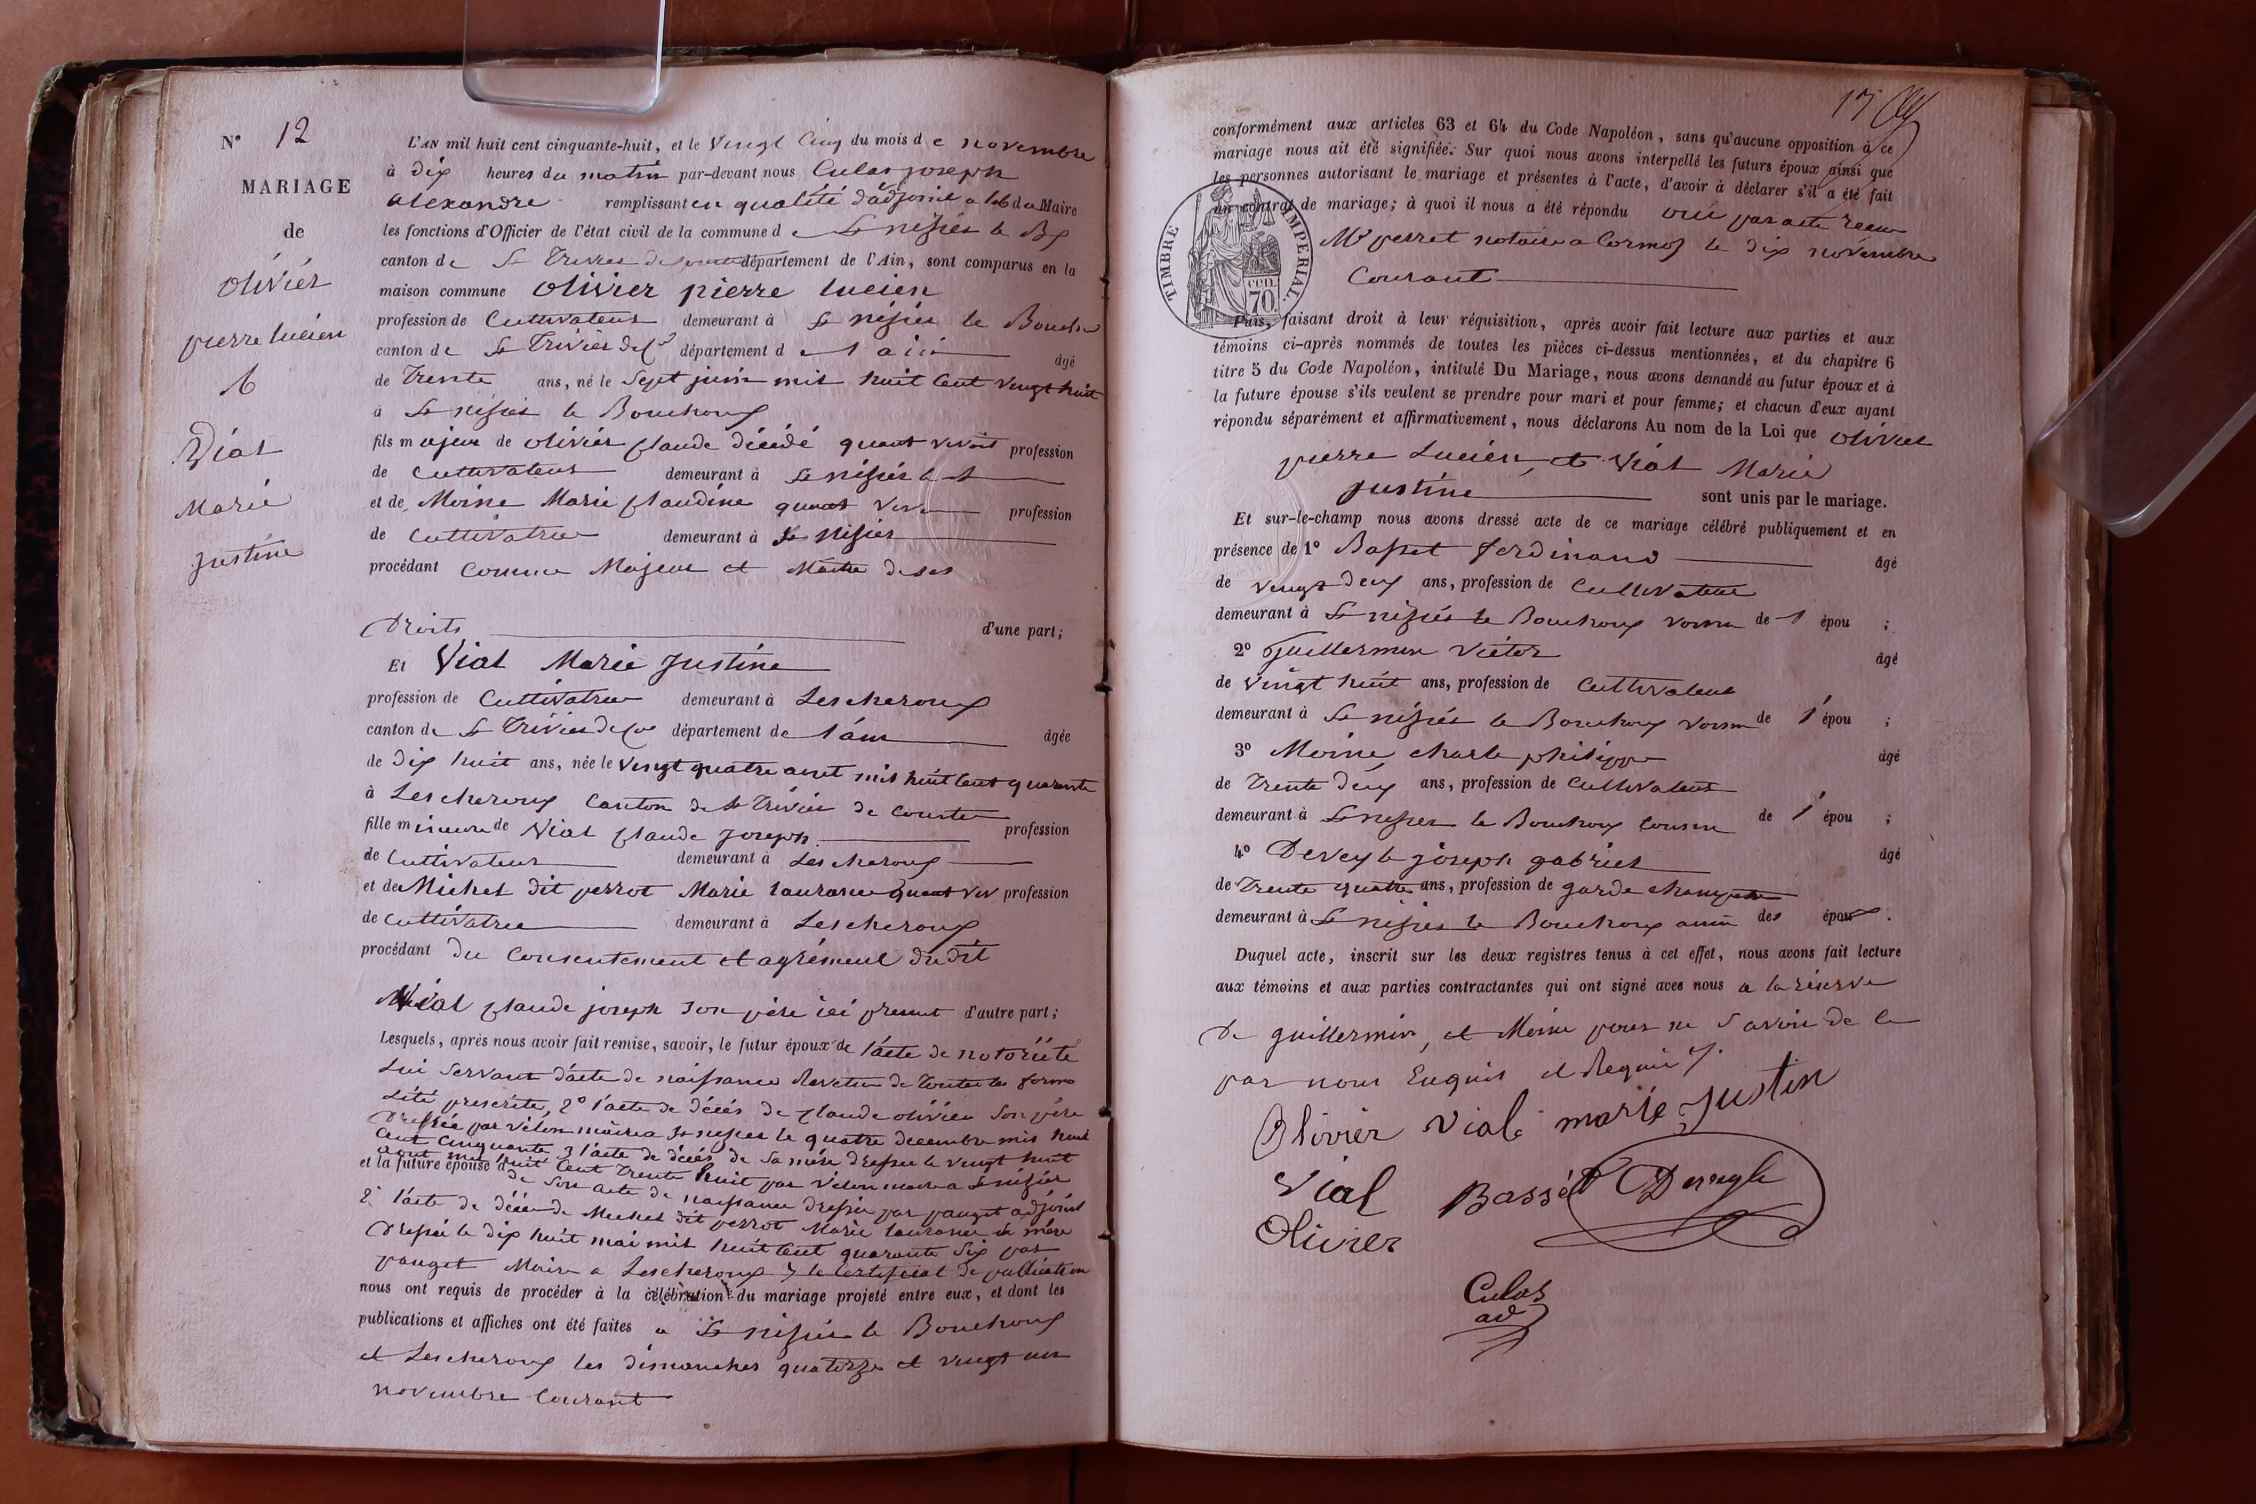 N° 12
MARIAGE
de
olivier
pierre lucien
&
Vial
Marie
Justine
L'AN mil huit cent cinquante-huit, et le vingt cinq du mois de novembre
à dix heures du matin par-devant nous Culas joseph
alexandre remplissant en qualité d'adjoint du Maire
les fonctions d'Officier de l'état civil de la commune de St nisier le Bx
canton de St Trivier de département de l'Ain, sont comparus en la
maison commune olivier pierre lucien
profession de Cultivateur demeurant à St nisier le Bouchoux
canton de St Trivier de Cs département de l ain âgé
de Trente ans, né le Sept juin mil huit Cent vingt huit
à St nisier le Bouchoux
fils majeur de olivier Claude décédé quant vivoit profession
de Cultivateur demeurant à St nisier le B
et de Moine Marie Claudine quant viv profession
de Cultivatrice demeurant à St Nisier
procédant Comme Majeur et Maitre de ses
Droits d'une part;
Et Vial Marie Justine
profession de Cultivatrice demeurant à Lescheroux
canton de St Trivier de Cou département de l'ain âgée
de Dix huit ans, née le vingt quatre aout mil huit Cent quarante
à Lescheroux Canton de St Trivier de Courtes
fille mineure de Vial Claude Joseph profession
de Cultivateur demeurant à Lescheroux
et de Michel dit perrot Marie laurance quant viv profession
de Cultivatrice demeurant à Lescheroux
procédant du Consentement et agrément dudit
Vial Claude joseph son père ici present d'autre part;
Lesquels, après nous avoir fait remise, savoir, le futur époux de l'acte de notoriété
Lui servant d'acte de naissance Revetue de Toutes les forma
lité prescrite, 2° l'acte de décés de Claude olivier Son père
Dressée par Vélon maire a St nisier le quatre decembre mil huit
Cent Cinquante 3 l'acte de décés de Sa mére dressee le vingt huit
aout mil huit Cent Trente huit par Vélon maire a St nisier
et la future épouse de Son acte de naissance dressée par pauget adjoint
2° l'acte de décés de Michel dit perrot Marie laurance sa mère
Dressé le dix huit mai mil huit Cent quarante Six par
pauget Maire a Lescheroux le Certificat de publication
nous ont requis de procéder à la célébration du mariage projeté entre eux, et dont les
publications et affiches ont été faites a St nisier le Bouchoux
et Lescheroux les dimanches quatorze et vingt un
novembre Courant
17
conformément aux articles 63 et 64 du Code Napoléon, sans qu'aucune opposition à ce
mariage nous ait été signifiée. Sur quoi nous avons interpellé les futurs époux ainsi que
les personnes autorisant le mariage et présentes à l'acte, d'avoir à déclarer s'il a été fait
un contrat de mariage; à quoi il nous a été répondu oui par acte Recu
Me perret notaire a Cormoz le dix novembre
Courant
TIMBRE IMPERIAL.
CEN.
70
Puis, faisant droit à leur réquisition, après avoir fait lecture aux parties et aux
témoins ci-après nommés de toutes les pièces ci-dessus mentionnées, et du chapitre 6
titre 5 du Code Napoléon, intitulé Du Mariage, nous avons demandé au futur époux et à
la future épouse s'ils veulent se prendre pour mari et pour femme; et chacun d'eux ayant
répondu séparément et affirmativement, nous déclarons Au nom de la Loi que olivier
pierre Lucien, et Vial Marie
Justine sont unis par le mariage.
Et sur-le-champ nous avons dressé acte de ce mariage célébré publiquement et en
présence de 1° Basset ferdinand âgé
de vingt deux ans, profession de Cultivateur
demeurant à St nisier le Bouchoux voisin de l épou ;
2° Guillermin Victor âgé
de vingt huit ans, profession de Cultivateur
demeurant à St nisier le Bouchoux voisin de l' épou ;
3° Moine charle philippe âgé
de Trente deux ans, profession de Cultivateur
demeurant à St nisier le Bouchoux Cousin de l' épou ;
4° Deveyle joseph gabriel âgé
de Trente quatre ans, profession de garde champetre
demeurant à St nisier le Bouchoux ami des époux.
Duquel acte, inscrit sur les deux registres tenus à cet effet, nous avons fait lecture
aux témoins et aux parties contractantes qui ont signé avec nous a la réserve
De guillermin, et Moine pour ne Savoir de ce
par nous Enquis et Requis
Olivier Vial marie Justin
Vial Basset Deveyle
Olivier
Culas
ad